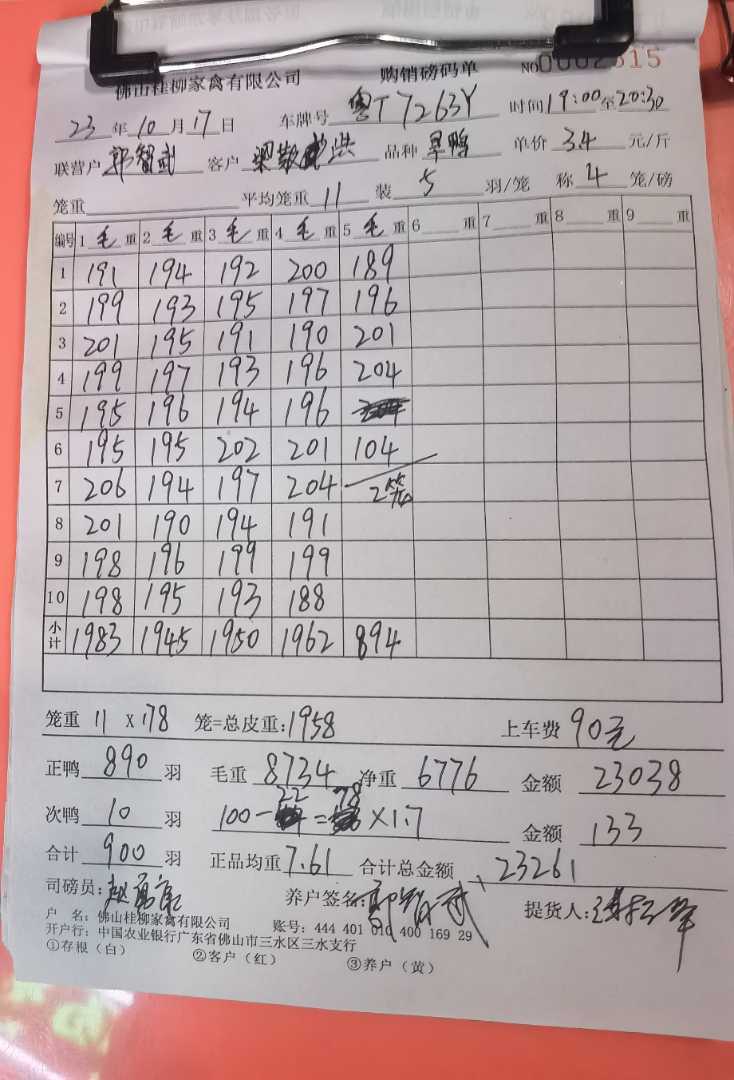 佛山桂柳家禽有限公司 购销磅码单 NO0002315
23 年 10 月 17 日 车牌号 粤T7263Y 时间 19:00 至 20:30
联营户 郭智武 客户 品种 旱鸭 单价 3.4 元/斤
笼重 平均笼重 11 装 5 羽/笼 称 4 笼/磅
编号 1 毛 重 2 毛 重 3 毛 重 4 毛 重 5 毛 重 6 重 7 重 8 重 9 重
1 191 194 192 200 189
2 199 193 195 197 196
3 201 195 191 190 201
4 199 197 193 196 204
5 195 196 194 196
6 195 195 202 201 104
7 206 194 197 204 2笼
8 201 190 194 191
9 198 196 199 199
10 198 195 193 188
小计 1983 1945 1950 1962 894
笼重 11 X 178 笼=总皮重: 1958 上车费 90元
正鸭 890 羽 毛重 8734 净重 6776 金额 23038
次鸭 10 羽 100-22=78×1.7 金额 133
合计 900 羽 正品均重 7.61 合计总金额 23261
司磅员: 养户签名: 郭智武 提货人:
户 名: 佛山桂柳家禽有限公司 账号: 444 401 010 400 169 29
开户行: 中国农业银行广东省佛山市三水区三水支行
①存根（白） ②客户（红） ③养户（黄）